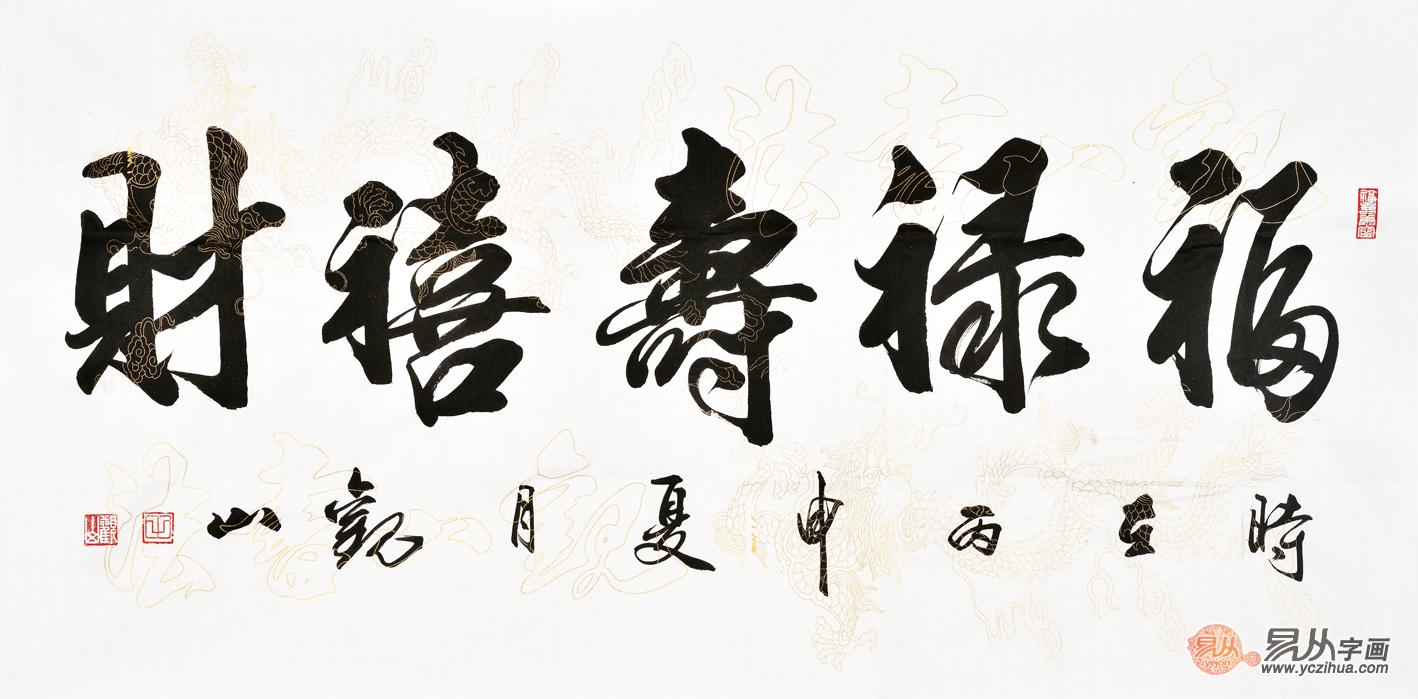 福禄壽禧財
時在丙申夏月觀山
易从字画
www.yczihua.com
yicon